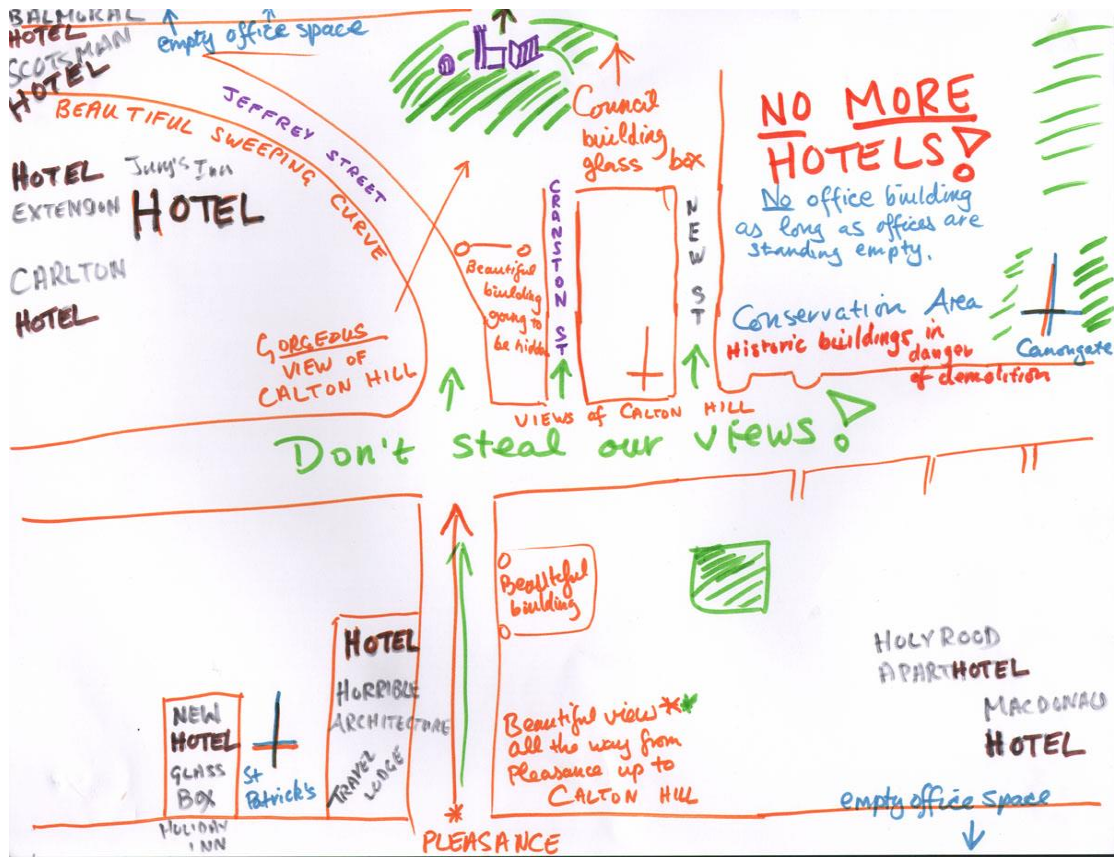 BALMORAL
HOTEL
SCOTSMAN
HOTEL
empty office space
JEFFREY STREET
BEAUTIFUL SWEEPING CURVE
HOTEL
EXTENSION
Jury's Inn
HOTEL
CARLTON
HOTEL
GORGEOUS
VIEW OF
CALTON HILL
Beautiful
building
going to
be hidden
CRANSTON ST
Council
building
glass box
NEW ST
NO MORE
HOTELS!
No office building
as long as offices are
standing empty.
Conservation Area
Historic buildings in
danger
of demolition
Canongate
VIEWS of CALTON HILL
Don't steal our views!
Beautiful
building
HOTEL
HORRIBLE
ARCHITECTURE
TRAVEL
LODGE
NEW
HOTEL
GLASS
BOX
HOLIDAY
INN
St
Patrick's
Beautiful view **
all the way from
Pleasance up to
CALTON HILL
PLEASANCE
HOLYROOD
APARTHOTEL
MACDONALD
HOTEL
empty office space